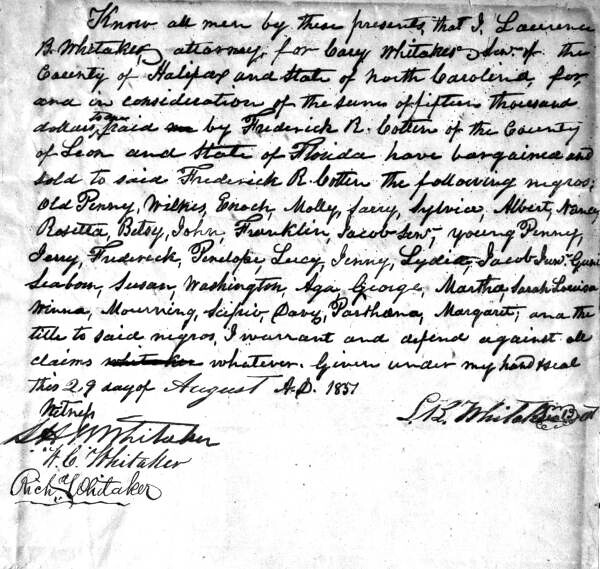 Know all men by these presents, that I, Laurence
B. Whitaker, attorney, for Cary Whitaker Senr of the
County of Halifax and State of North Carolina, for
and in consideration of the sum of fifteen thousand
dollars, to me paid by Frederick R. Cotten of the County
of Leon and State of Florida have bargained and
sold to said Frederick R. Cotten the following negros;
Old Penny, Wilkes, Enoch, Molly, Sylvia, Albert, Nancy
Rosetta, Betsy, John, Franklin, Jacob Senr, young Penny,
Jerry, Frederick, Penelope, Lucy, Jenny, Lydia, Jacob Junr,
Seaborn, Susan, Washington, Aga, George, Martha, Sarah Louisa
Winna, Mourning, Scipio, Davy, Parthena, Margaret; and the
title to said negros, I warrant and defend against all
claims whatever. Given under my hand & seal
this 29 day of August A.D. 1851
Witness
L.B. Whitaker
Whitaker
Whitaker
Richd Whitaker